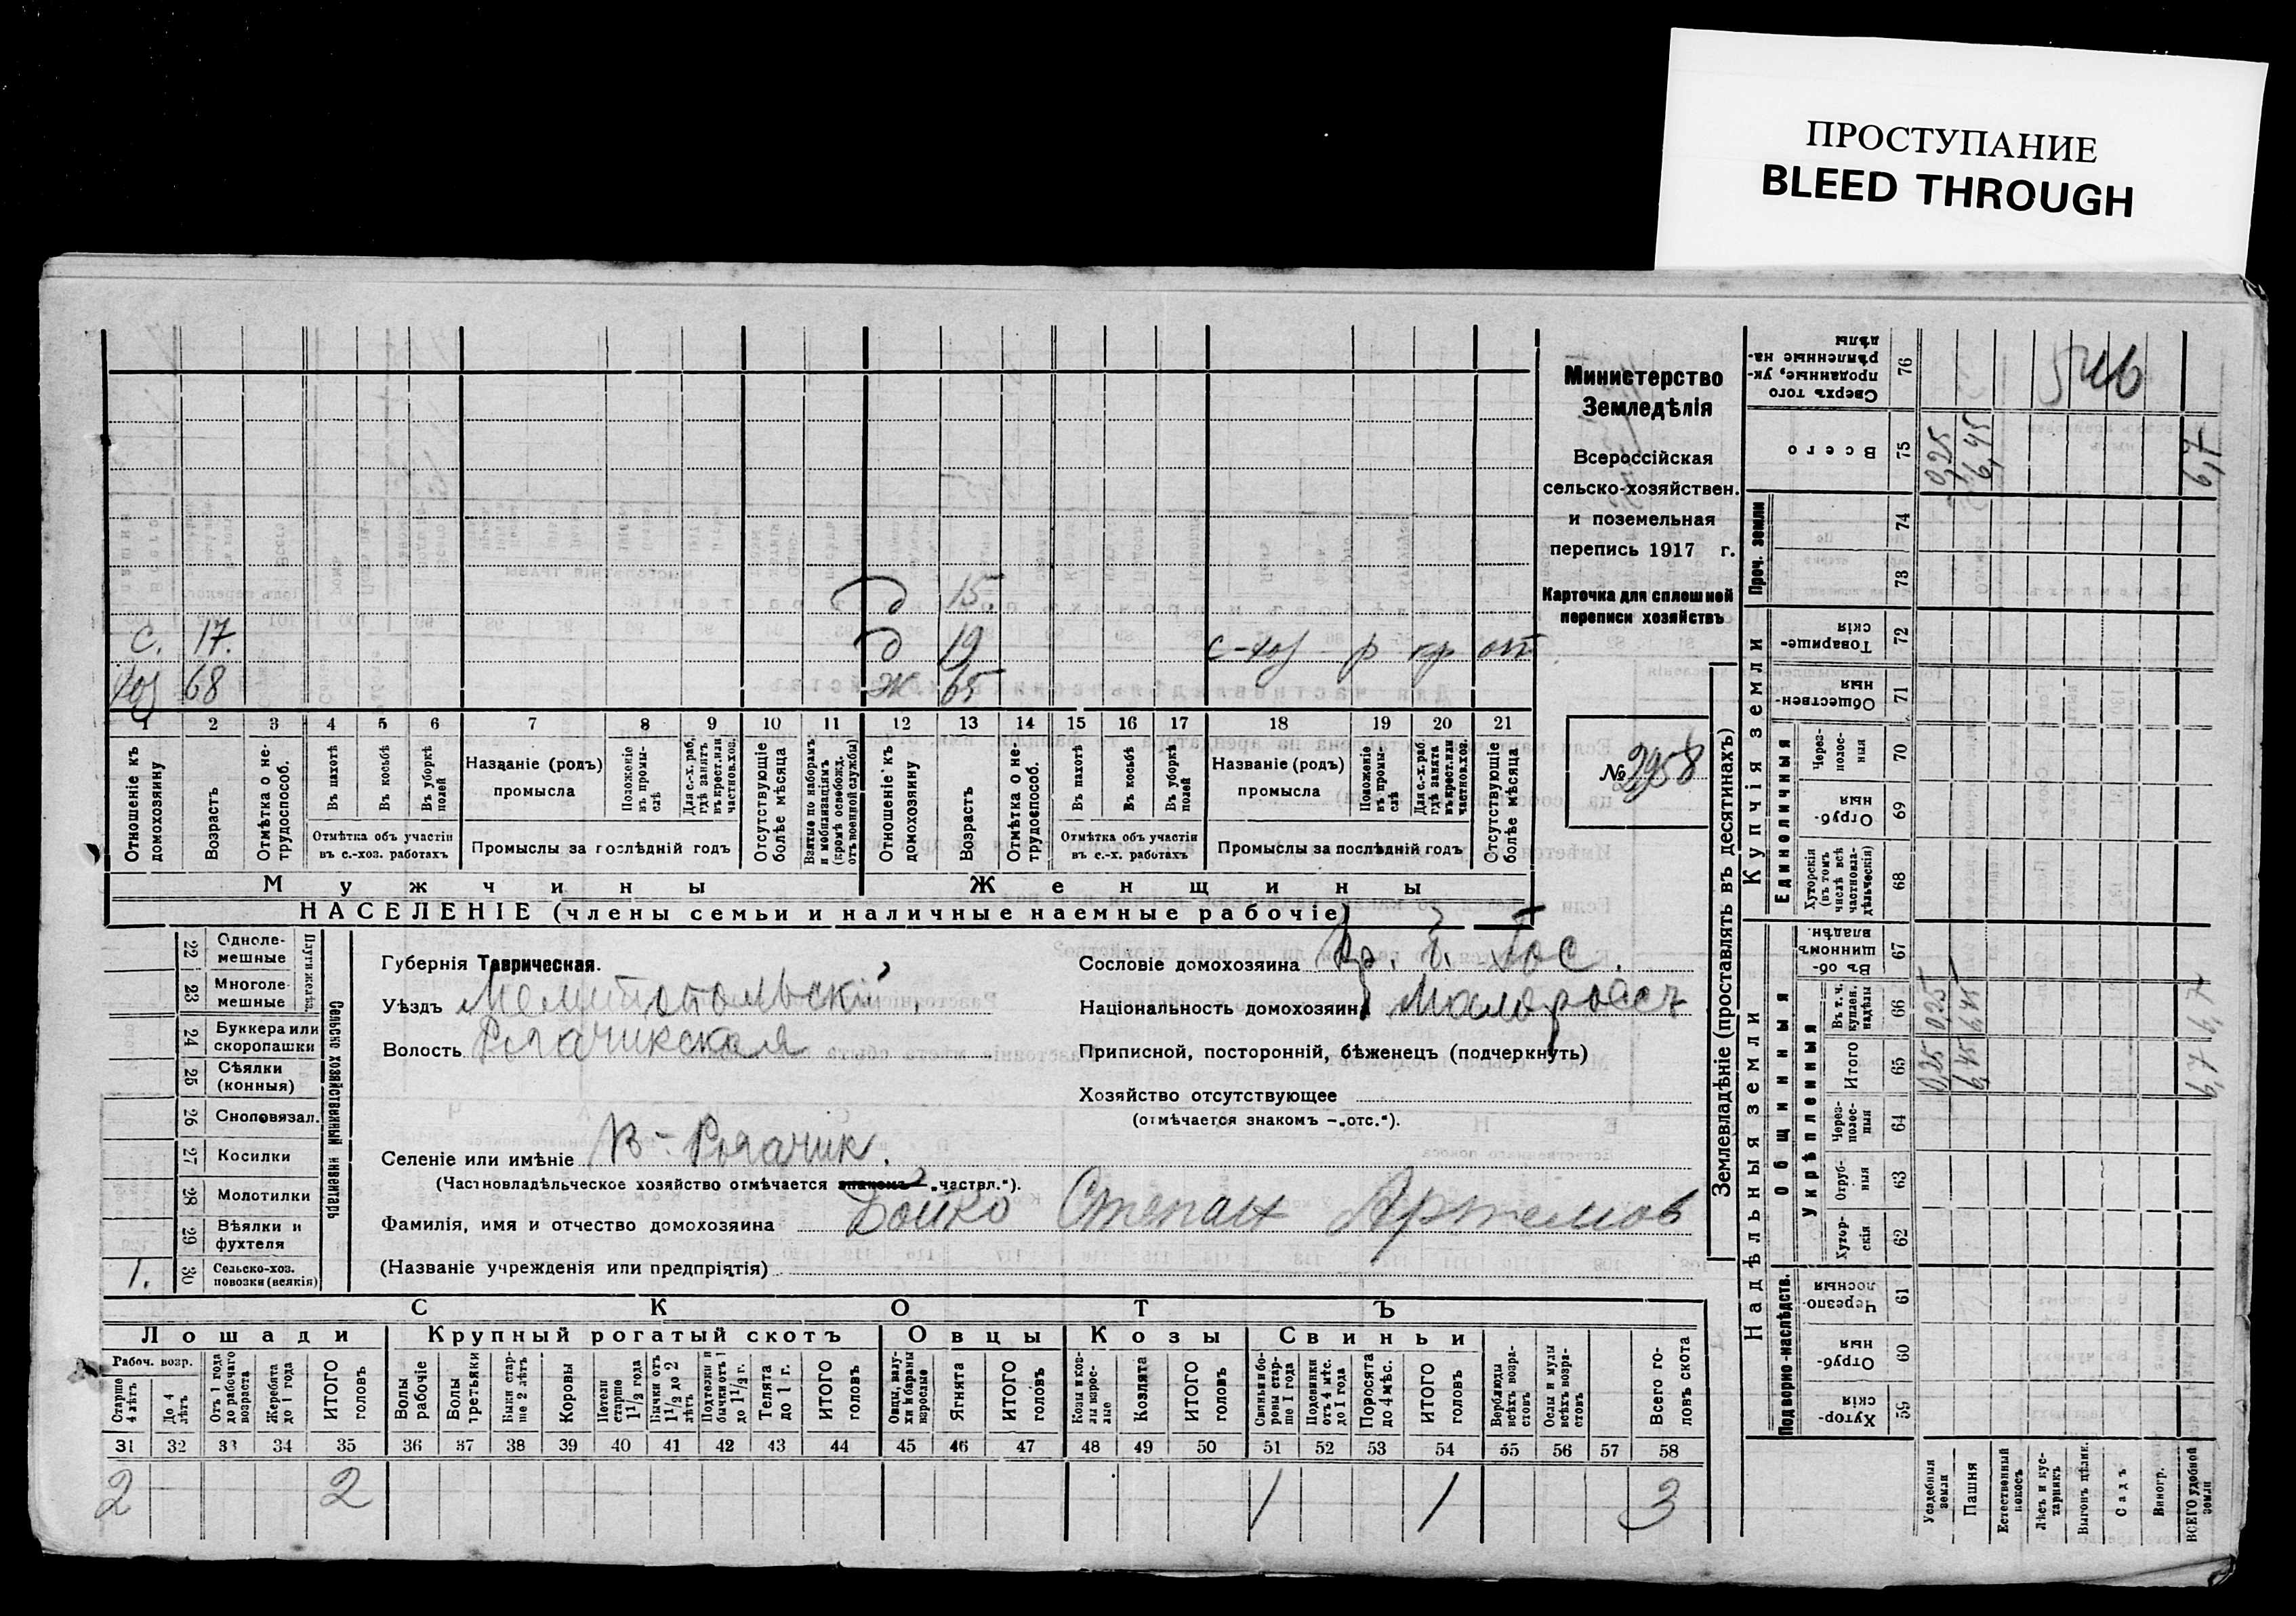 ПРОСТУПАНИЕ
BLEED THROUGH
Министерство
Земледѣлія
Всероссійская
сельско-хозяйствен.
и поземельная
перепись 1917 г.
Карточка для сплошной
переписи хозяйствъ
№ 2958
д 15.
с. 17. д 19 с-хоз р кр от
хоз 68 ж 65
1 2 3 4 5 6 7 8 9 10 11 12 13 14 15 16 17 18 19 20 21
Отношеніе къ домохозяину
Возрастъ
Отмѣтка о нетрудоспособ.
Въ пахотѣ
Въ косьбѣ
Въ уборкѣ полей
Отмѣтка объ участіи въ с.-хоз. работахъ
Названіе (родъ) промысла
Положеніе въ промыслѣ
Для с.-х. раб. гдѣ занятъ въ крест. или частнов. хоз.
Промыслы за послѣдній годъ
Отсутствующіе болѣе мѣсяца
Взятые по наборамъ и мобилизаціямъ (кромѣ освобожд. отъ военной службы)
Отношеніе къ домохозяину
Возрастъ
Отмѣтка о нетрудоспособ.
Въ пахотѣ
Въ косьбѣ
Въ уборкѣ полей
Отмѣтка объ участіи въ с.-х. работахъ
Названіе (родъ) промысла
Положеніе въ промыслѣ
Для с.-х. раб. гдѣ занята въ крест. или частнов. хоз.
Промыслы за послѣдній годъ
Отсутствующіе болѣе мѣсяца
Мужчины Женщины
НАСЕЛЕНІЕ (члены семьи и наличные наемные рабочіе)
22 Однолемешные
23 Многолемешные
24 Буккера или скоропашки
25 Сѣялки (конныя)
26 Сноповязал.
27 Косилки
28 Молотилки
29 Вѣялки и фухтеля
1. 30 Сельско-хоз. повозки (всякія)
Сельско хозяйственный инвентарь
Губернія Таврическая.
Уѣздъ Мелитопольскій
Волость Рогачикская
Селеніе или имѣніе В-Рогачик.
(Частновладѣльческое хозяйство отмѣчается знакомъ „частвл.“).
Фамилія, имя и отчество домохозяина Бойко Степан Артемов
(Названіе учрежденія или предпріятія)
Сословіе домохозяина Кр.
Національность домохозяина Малоросъ
Приписной, посторонній, бѣженецъ (подчеркнуть)
Хозяйство отсутствующее
(отмѣчается знакомъ —„отс.“).
СКОТЪ
Лошади Крупный рогатый скотъ Овцы Козы Свиньи
Рабоч. возр.
Старше 4 лѣтъ
До 4 лѣтъ
Отъ 1 года до рабочаго возраста
Жеребята до 1 года
ИТОГО головъ
Волы рабочіе
Волы третьяки
Быки старше 2 лѣтъ
Коровы
Нетели старше 1 1/2 года
Бычки отъ 1 1/2 до 2 лѣтъ
Подтелки и бычки отъ 1 до 1 1/2 г.
Телята до 1 г.
ИТОГО головъ
Овцы, валухи и бараны взрослые
Ягнята
ИТОГО головъ
Козы и козлы взрослые
Козлята
ИТОГО головъ
Свиньи и боровы старше 1 года
Подсвинки отъ 4 мѣс. до 1 года
Поросята до 4 мѣс.
ИТОГО головъ
Верблюды всѣхъ возрастовъ
Ослы и мулы всѣхъ возрастовъ
Всего головъ скота
31 32 33 34 35 36 37 38 39 40 41 42 43 44 45 46 47 48 49 50 51 52 53 54 55 56 57 58
2 2 1 1 3
Землевладѣніе (проставлять въ десятинахъ)
Надѣльныя земли Купчія земли
Подворно-наслѣдств.
Общинныя
Укрѣпленныя
Единоличныя
Проч. земли
Хуторскія 59
Отрубныя 60
Черезполосныя 61
Хуторскія 62
Отрубныя 63
Черезполосныя 64
Итого 65 0,25 6,45 6,7
Въ т. ч. куплен. надѣлы 66 0,25 6,45 6,7
Въ общинномъ владѣн. 67
Хуторскія (въ томъ числѣ всѣ частновладѣльческія) 68
Отрубныя 69
Черезполосныя 70
Общественныя 71
Товарищескія 72
73
74
Всего 75 0,25 6,45 6,7
Сверхъ того проданные, укрѣпленные надѣлы 76
Усадебныя земли
Пашня
Естественный покосъ
Лѣсъ и кустарникъ
Выгонъ цѣлин.
Садъ
Виногр.
ВСЕГО удобной земли